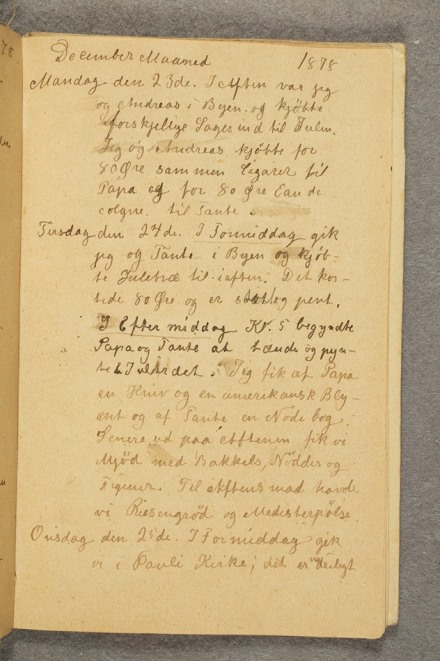 December Maaned 1878
Mandag den 23de. I Aften var jeg
og Andreas i Byen. og kjøbte
forskjellige Sager ind til Julen.
Jeg og Andreas kjøbte for
80 Øre sammen Cigarer til
Papa og for 80 Øre Eau de
cologne. til Tante.
Tirsdag den 24de. I Formiddag gik
jeg og Tante i Byen og kjøb-
te Juletræ til iaften. Det kos-
tede 80 Øre og er stort og pent.
I Eftermiddag Kl. 5 begyndte
Papa og Tante at tænde og pyn-
te Juletræet. Jeg fik af Papa
en Kniv og en amerikansk Bly-
ant og af Tante en Node bog.
Senere ud paa Aftenen fik vi
Mjød med Bakkels, Nødder og
Figener. Til Aftensmad havde
vi Risengrød og Medisterpølse
Onsdag den 25de. I Formiddag gik
vi i Pauli Kirke; det er deiligt